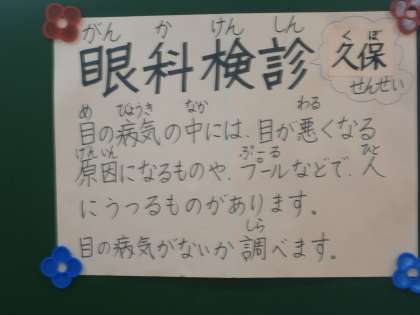 がん か けん しん
眼科検診
くぼ
久保
せんせい
め びょうき なか わる
目の病気の中には、目が悪くなる
げんいん ぷーる ひと
原因になるものや、プールなどで、人
にうつるものがあります。
しら
目の病気がないか調べます。